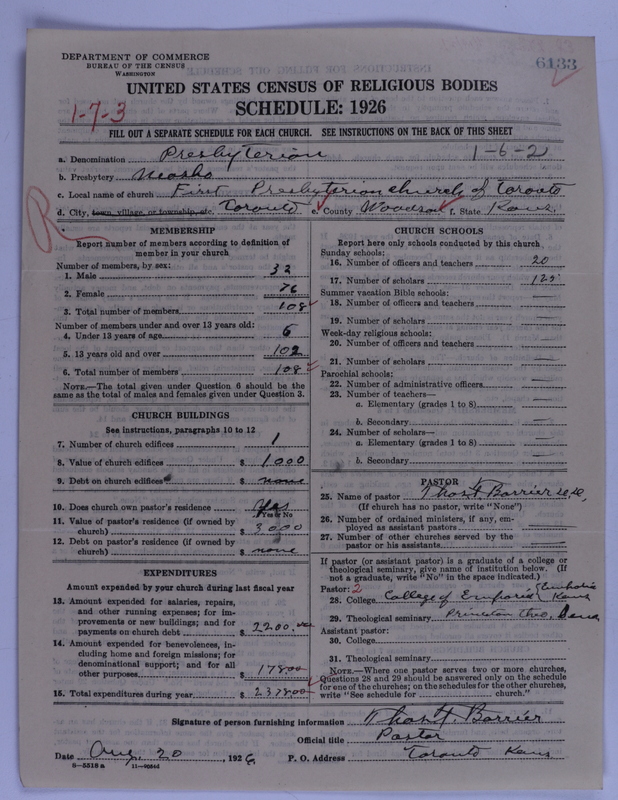 DEPARTMENT OF COMMERCE
BUREAU OF THE CENSUS
WASHINGTON
6133
UNITED STATES CENSUS OF RELIGIOUS BODIES
1-7-3
SCHEDULE: 1926
FILL OUT A SEPARATE SCHEDULE FOR EACH CHURCH. SEE INSTRUCTIONS ON THE BACK OF THIS SHEET
a. Denomination Presbyterian 1-6-2
b. Presbytery Neosho
c. Local name of church First Presbyterian church of Toronto
d. City, town, village, or township, etc. Toronto e. County Woodson f. State Kans.
MEMBERSHIP
Report number of members according to definition of
member in your church
Number of members, by sex:
1. Male 32
2. Female 76
3. Total number of members 108
Number of members under and over 13 years old:
4. Under 13 years of age 6
5. 13 years old and over 102
6. Total number of members 108
NOTE.—The total given under Question 6 should be the
same as the total of males and females given under Question 3.
CHURCH BUILDINGS
See instructions, paragraphs 10 to 12
7. Number of church edifices 1
8. Value of church edifices $ 1000
9. Debt on church edifices $ none
10. Does church own pastor's residence Yes
Yes or No
11. Value of pastor's residence (if owned by
church) $ 3000
12. Debt on pastor's residence (if owned by
church) $ none
EXPENDITURES
Amount expended by your church during last fiscal year
13. Amount expended for salaries, repairs,
and other running expenses; for im-
provements or new buildings; and for
payments on church debt $ 2200.00
14. Amount expended for benevolences, in-
cluding home and foreign missions; for
denominational support; and for all
other purposes $ 178.00
15. Total expenditures during year $ 2378.00
CHURCH SCHOOLS
Report here only schools conducted by this church
Sunday schools:
16. Number of officers and teachers 20
17. Number of scholars 125
Summer vacation Bible schools:
18. Number of officers and teachers —
19. Number of scholars —
Week-day religious schools:
20. Number of officers and teachers —
21. Number of scholars —
Parochial schools:
22. Number of administrative officers —
23. Number of teachers—
a. Elementary (grades 1 to 8) —
b. Secondary —
24. Number of scholars—
a. Elementary (grades 1 to 8) —
b. Secondary —
PASTOR
25. Name of pastor Thos F. Barrier
(If church has no pastor, write "None")
26. Number of ordained ministers, if any, em-
ployed as assistant pastors —
27. Number of other churches served by the
pastor or his assistants —
If pastor (or assistant pastor) is a graduate of a college or
theological seminary, give name of institution below. (If
not a graduate, write "No" in the space indicated.)
Pastor: 2
28. College College of Emporia Emporia Kans
29. Theological seminary Princeton Theo.
Assistant pastor:
30. College
31. Theological seminary
NOTE.—Where one pastor serves two or more churches,
Questions 28 and 29 should be answered only on the schedule
for one of the churches; on the schedules for the other churches,
write "See schedule for church."
Signature of person furnishing information Thos F. Barrier
Official title Pastor
Date Aug. 20, 1926 P. O. Address Toronto Kans
8-5318 a